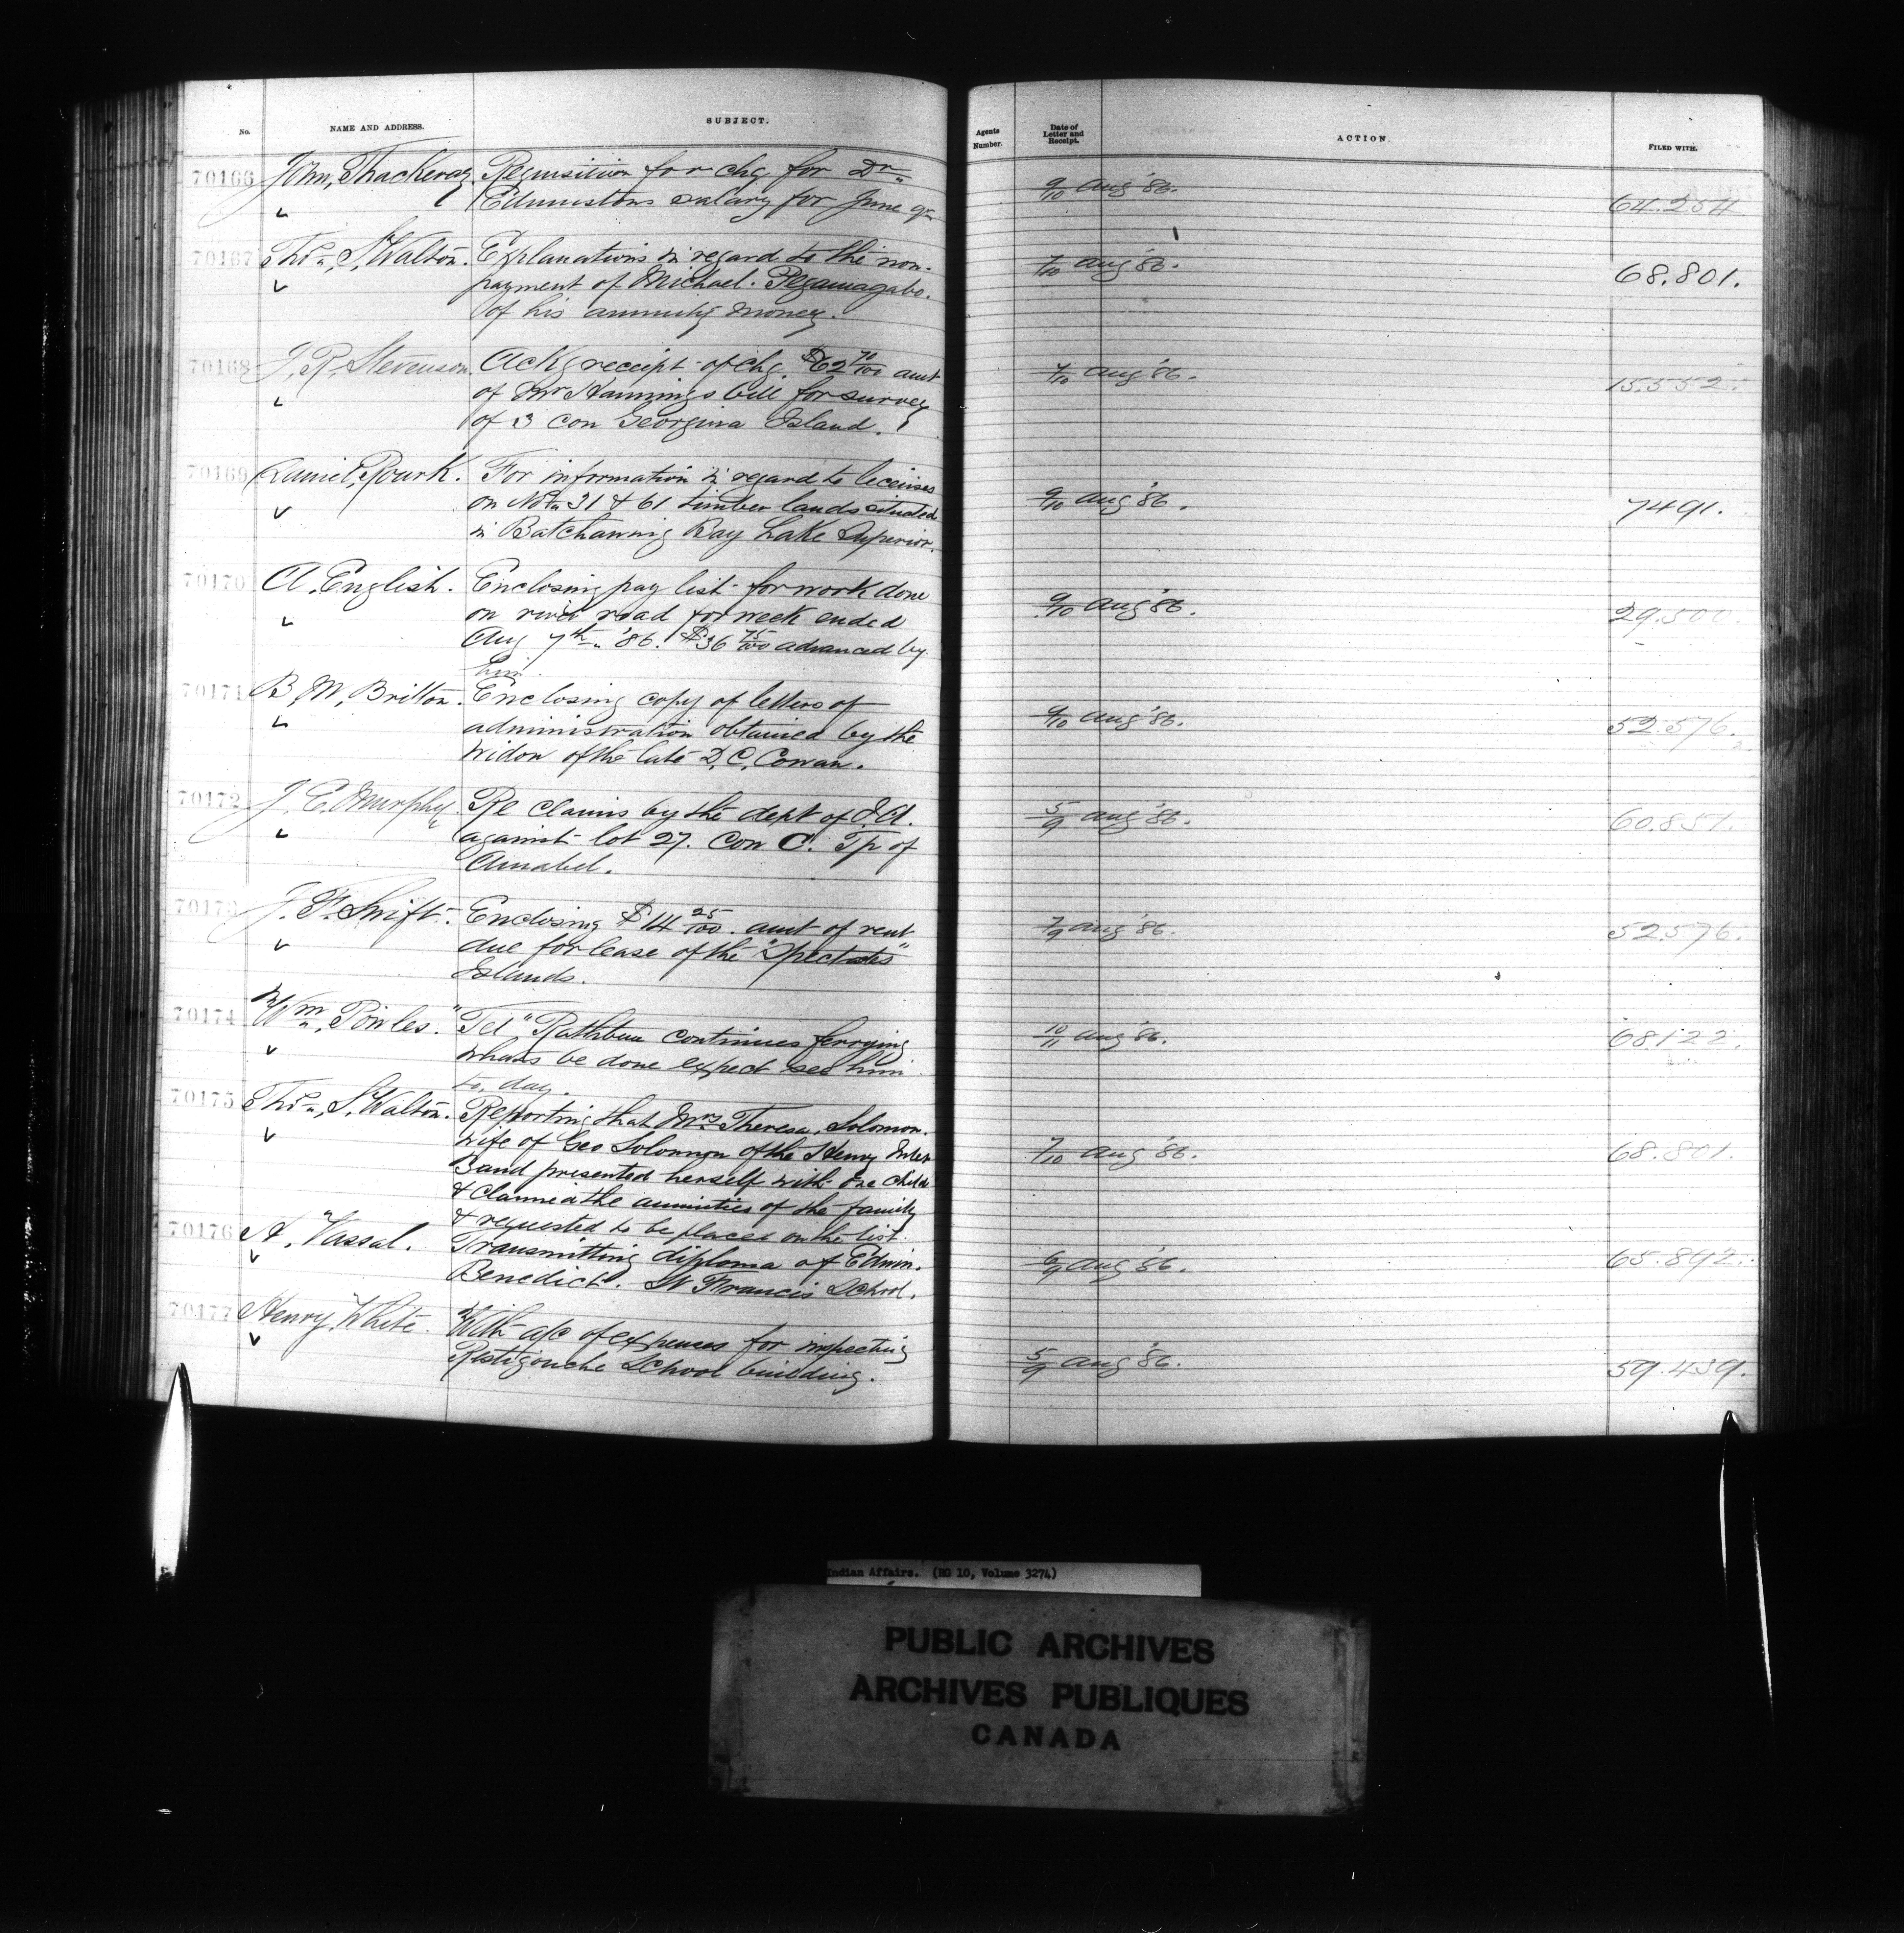 No. NAME AND ADDRESS. SUBJECT. Agents Number. Date of Letter and Receipt. ACTION. FILED WITH.
70166 John, Thackeray Requisition for chq for Dr 9/10 Aug '86. 64.254
Edmistons salary for June qr
70167 Thos, S, Walton. Explanations in regard to the non- 7/10 Aug '86. 68.801.
payment of Michael. Pegamagabo.
of his annuity money.
70168 J, R, Stevenson. Ackg receipt of chq. $62 70/100 amt 7/10 Aug '86. 15.552.
of Mr Hannings bill for survey
of 3 con Georgina Island.
70169 Daniel, Rourk. For information in regard to licenses 9/10 Aug '86. 7491.
on Nos 31 & 61 timber lands situated
in Batchawnig Bay Lake Superior.
70170 A. English. Enclosing pay list for work done 9/10 Aug '86. 29.500.
on river road for week ended
Aug 7th '86. $36 75/100 advanced by
him.
70171 B, M, Britton. Enclosing copy of letters of 9/10 Aug '86. 52.576.
administration obtained by the
widow of the late D, C, Cowan.
70172 J, C. Murphy. Re claims by the dept of I.A. 5/9 Aug '86. 60.851.
against lot 27. Con C. Tp of
Amabel.
70173 J. F. Swift. Enclosing $14 25/100. amt of rent 7/9 Aug '86. 52.576.
due for lease of the "Spectacles"
Islands.
70174 Wm, Powles. "Tel" Rathbun continues ferrying 10/11 Aug '86. 68122.
whats be done expect see him
to, day.
70175 Thos, S, Walton. Reporting that Mrs Theresa, Solomon. 7/10 Aug '86. 68.801.
wife of Geo Solomon of the Henvy Inlet
Band presented herself with one child
& claimed the annuities of the family
& requested to be placed on the list.
70176 H, Vassal. Transmitting diploma of Edwin. 6/9 Aug '86. 65.892.
Benedict. St Francis School.
70177 Henry, White. With a/c of expenses for inspecting 5/9 Aug '86. 59.439.
Restigouche School building.
Indian Affairs. (RG 10, Volume 3274)
PUBLIC ARCHIVES
ARCHIVES PUBLIQUES
CANADA